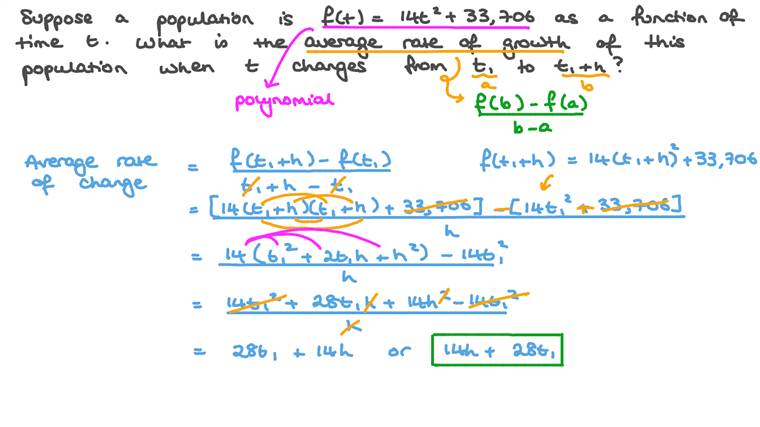 Suppose a population is f(t) = 14t² + 33,706 as a function of
time t. What is the average rate of growth of this
population when t changes from t₁ to t₁+h?
a b
polynomial
f(b) - f(a)
b - a
Average rate of change = f(t₁+h) - f(t₁)
t₁ + h - t₁
f(t₁+h) = 14(t₁+h)² + 33,706
= [14(t₁+h)(t₁+h) + 33,706] - [14t₁² + 33,706]
h
= 14(t₁² + 2t₁h + h²) - 14t₁²
h
= 14t₁² + 28t₁h + 14h² - 14t₁²
h
= 28t₁ + 14h or 14h + 28t₁